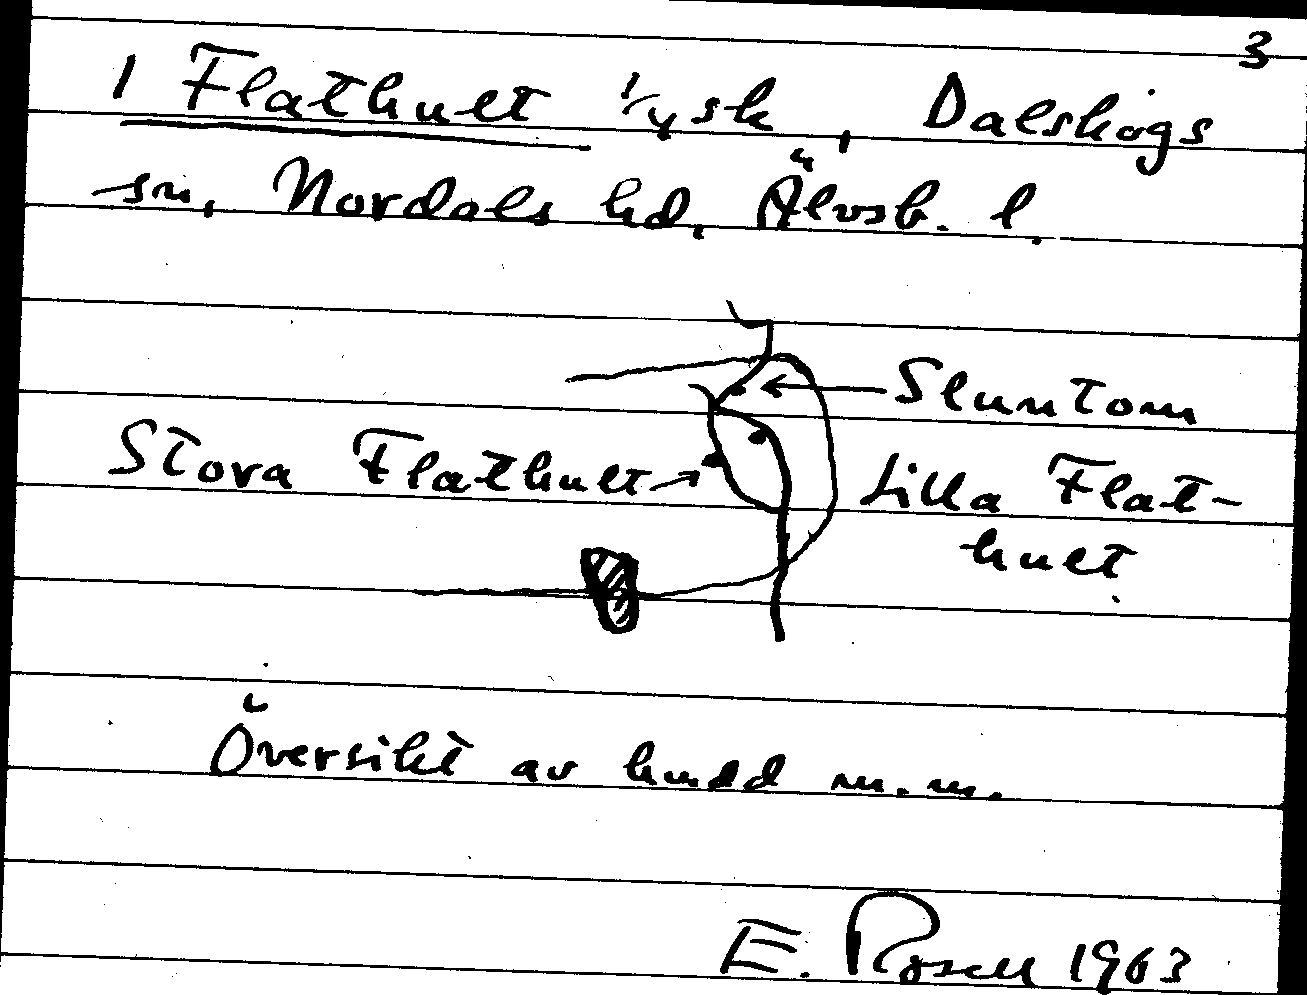 3
1 Flathult 1/4 sk, Dalskogs
sn, Nordals hd, Älvsb. l.
Sluntom
Stora Flathult
Lilla Flat-
hult
Översikt av hmdd m.m.
E. Rosell 1963